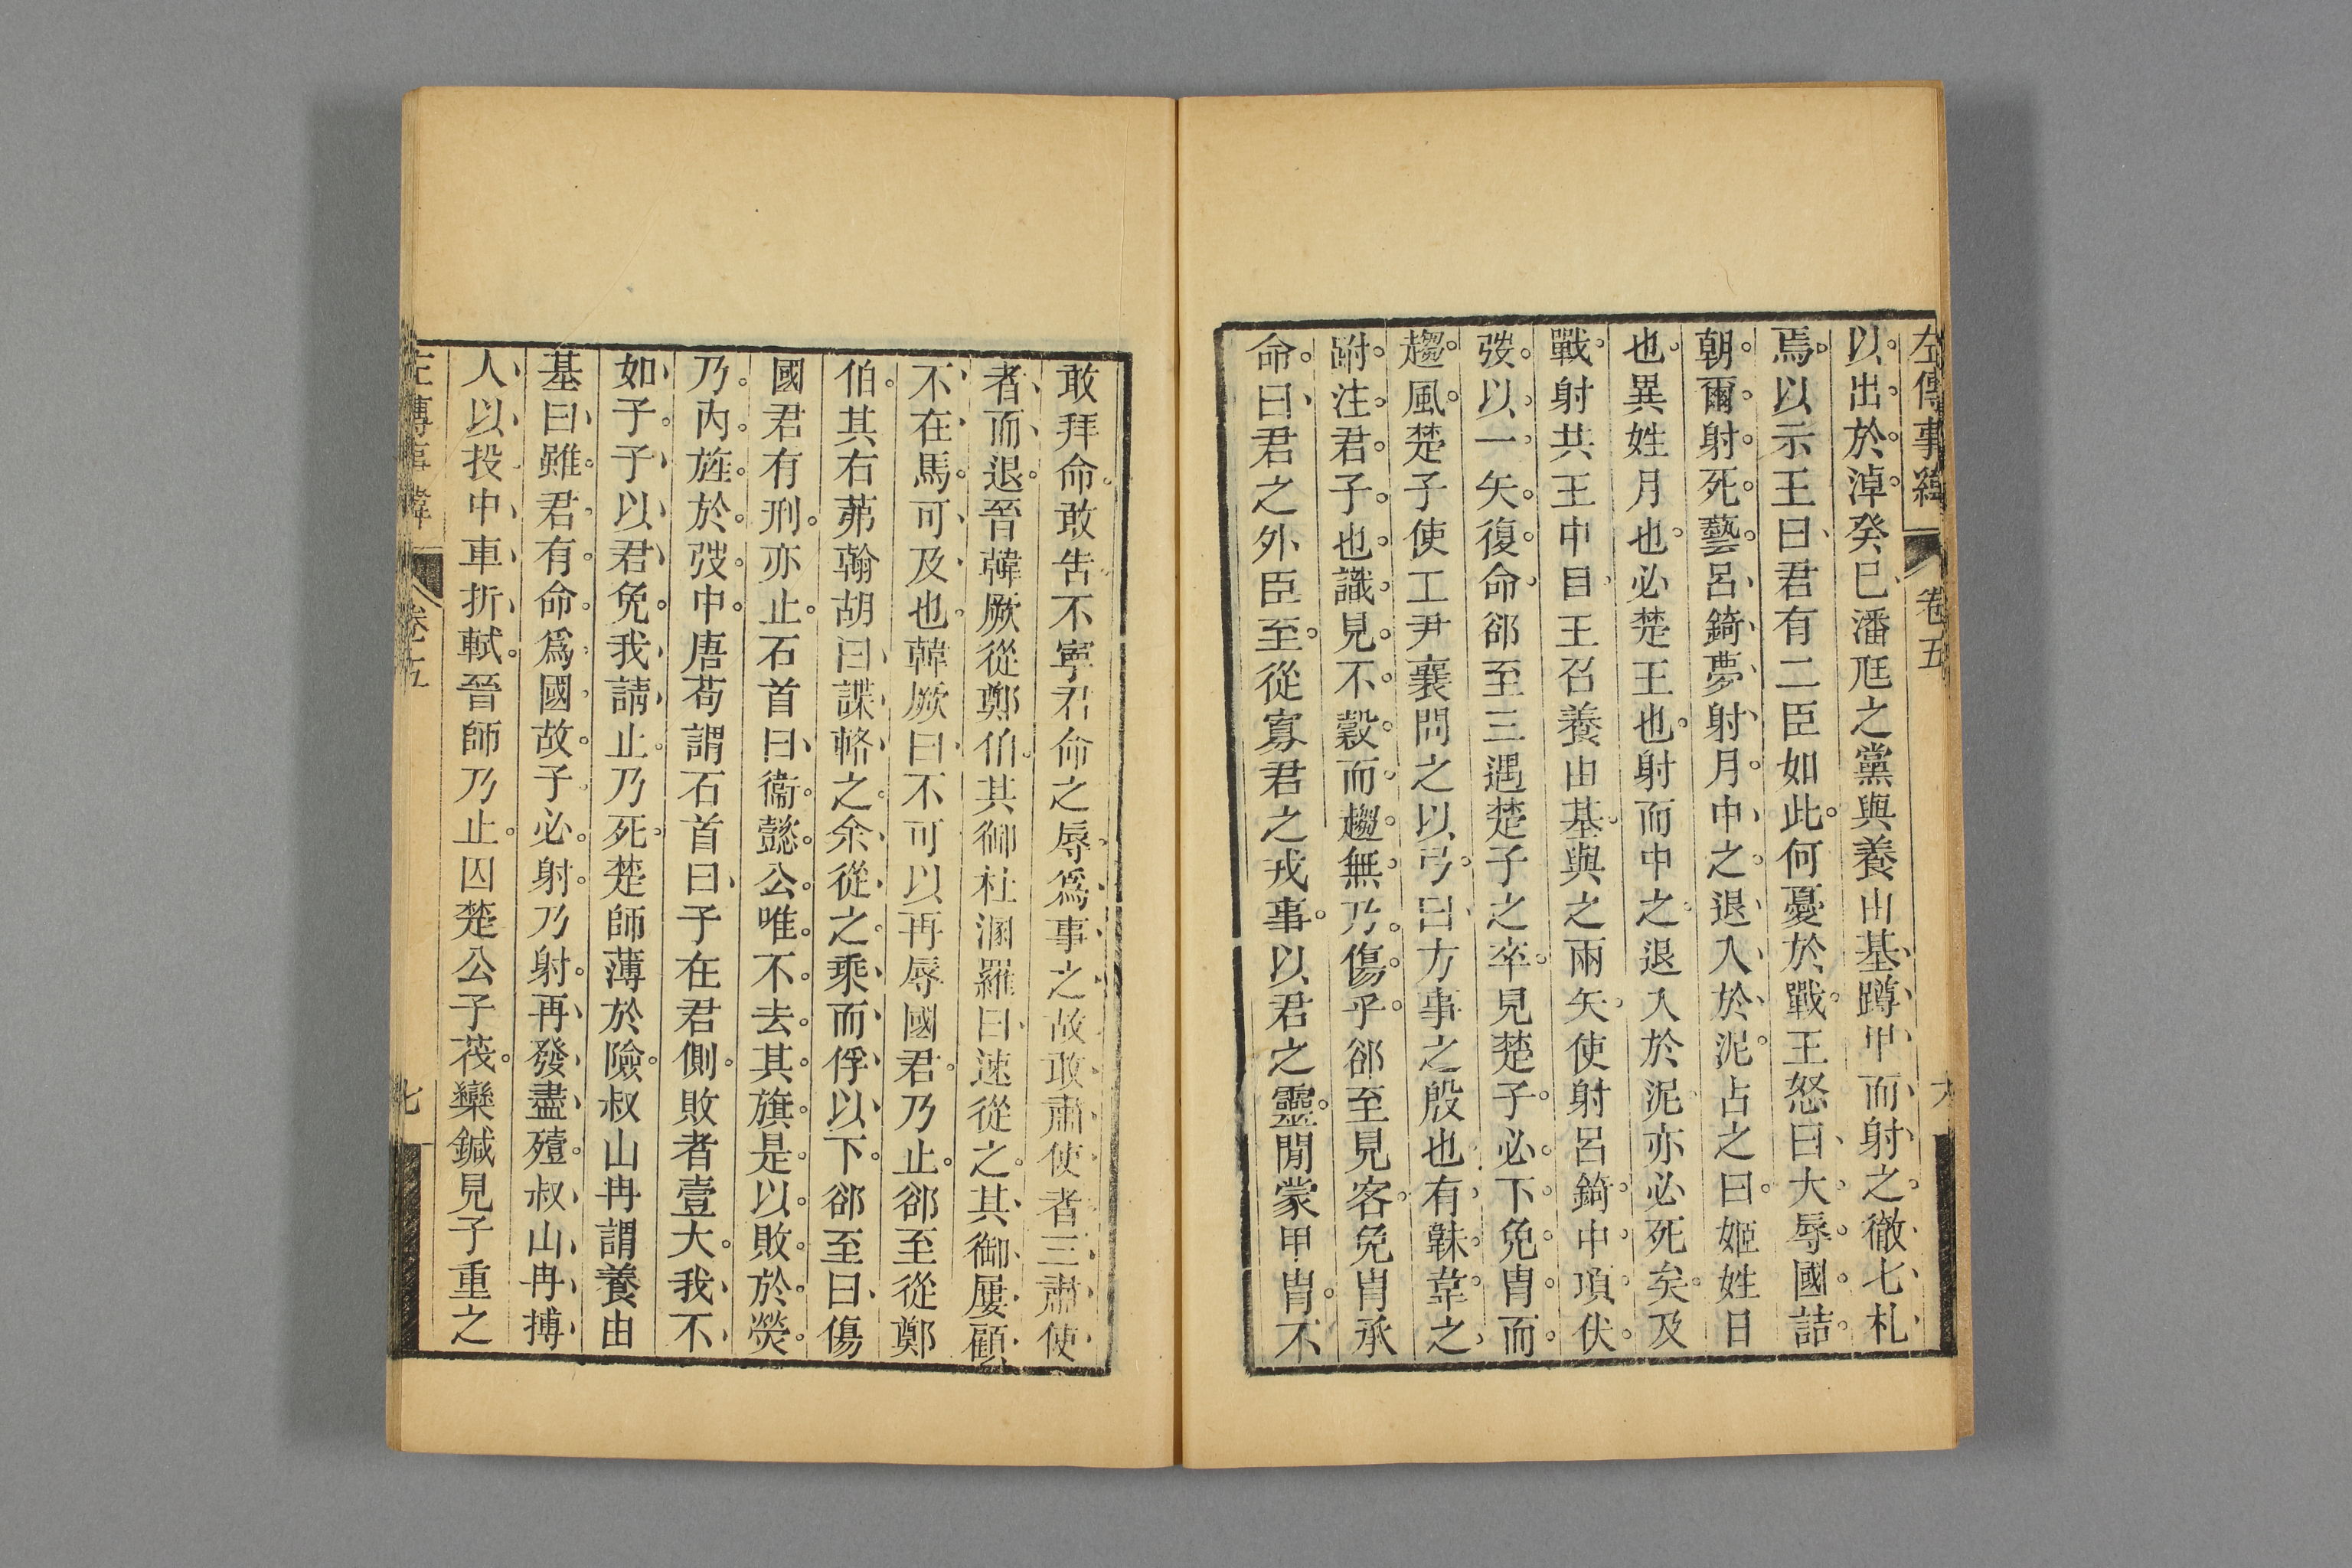 左傳事緯 卷五 六
以出於淖癸巳潘尫之黨與養由基蹲甲而射之徹七札
焉以示王曰君有二臣如此何憂於戰王怒曰大辱國詰
朝爾射死藝呂錡夢射月中之退入於泥占之曰姬姓日
也異姓月也必楚王也射而中之退入於泥亦必死矣及
戰射共王中目王召養由基與之兩矢使射呂錡中項伏
弢以一矢復命郤至三遇楚子之卒見楚子必下免冑而
趨風楚子使工尹襄問之以弓曰方事之殷也有韎韋之
跗注君子也識見不穀而趨無乃傷乎郤至見客免冑承
命曰君之外臣至從寡君之戎事以君之靈閒蒙甲冑不
敢拜命敢告不寧君命之辱爲事之故敢肅使者三肅使
者而退晉韓厥從鄭伯其御杜溷羅曰速從之其御屢顧
不在馬可及也韓厥曰不可以再辱國君乃止郤至從鄭
伯其右茀翰胡曰諜輅之余從之乘而俘以下郤至曰傷
國君有刑亦止石首曰衞懿公唯不去其旗是以敗於熒
乃內旌於弢中唐苟謂石首曰子在君側敗者壹大我不
如子子以君免我請止乃死楚師薄於險叔山冉謂養由
基曰雖君有命爲國故子必射乃射再發盡殪叔山冉搏
人以投中車折軾晉師乃止囚楚公子茷欒鍼見子重之
左傳事緯 卷五 七